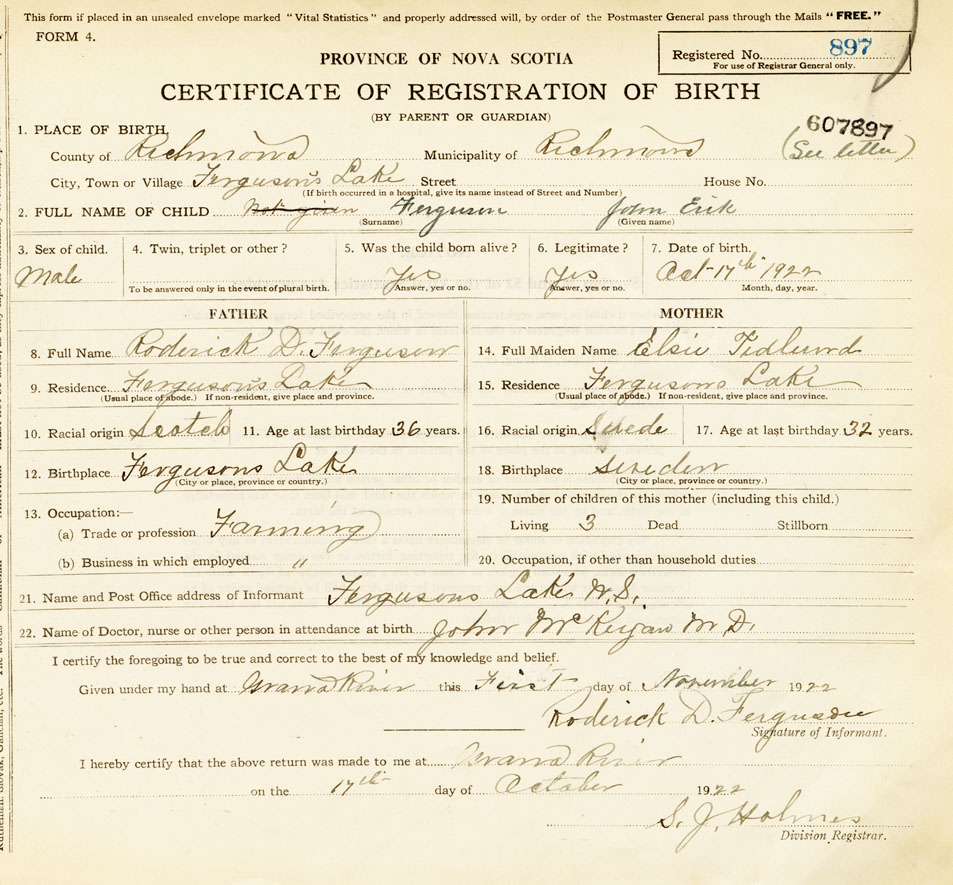 This form if placed in an unsealed envelope marked "Vital Statistics" and properly addressed will, by order of the Postmaster General pass through the Mails "FREE."
FORM 4.
Registered No. 897
For use of Registrar General only.
PROVINCE OF NOVA SCOTIA
CERTIFICATE OF REGISTRATION OF BIRTH
(BY PARENT OR GUARDIAN)
607897
(See letter)
1. PLACE OF BIRTH,
County of Richmond Municipality of Richmond
City, Town or Village Ferguson's Lake Street House No.
(If birth occurred in a hospital, give its name instead of Street and Number)
2. FULL NAME OF CHILD Not given Ferguson John Erik
(Surname) (Given name)
3. Sex of child. 4. Twin, triplet or other? 5. Was the child born alive? 6. Legitimate? 7. Date of birth.
Male Yes Yes Oct 17th 1922
To be answered only in the event of plural birth. Answer, yes or no. Answer, yes or no. Month, day, year.
FATHER MOTHER
8. Full Name Roderick D. Ferguson 14. Full Maiden Name Elsie
9. Residence Ferguson's Lake 15. Residence Fergusons Lake
(Usual place of abode.) If non-resident, give place and province. (Usual place of abode.) If non-resident, give place and province.
10. Racial origin Scotch 11. Age at last birthday 36 years. 16. Racial origin Swede 17. Age at last birthday 32 years.
12. Birthplace Fergusons Lake 18. Birthplace Sweden
(City or place, province or country.) (City or place, province or country.)
19. Number of children of this mother (including this child.)
13. Occupation:—
(a) Trade or profession Farming Living 3 Dead Stillborn
(b) Business in which employed " 20. Occupation, if other than household duties
21. Name and Post Office address of Informant Fergusons Lake N.S.
22. Name of Doctor, nurse or other person in attendance at birth John M. D.
I certify the foregoing to be true and correct to the best of my knowledge and belief.
Given under my hand at Grand River this First day of November 1922
Roderick D. Ferguson
Signature of Informant.
I hereby certify that the above return was made to me at Grand River
on the 17th day of October 1922
S. J. Holmes
Division Registrar.